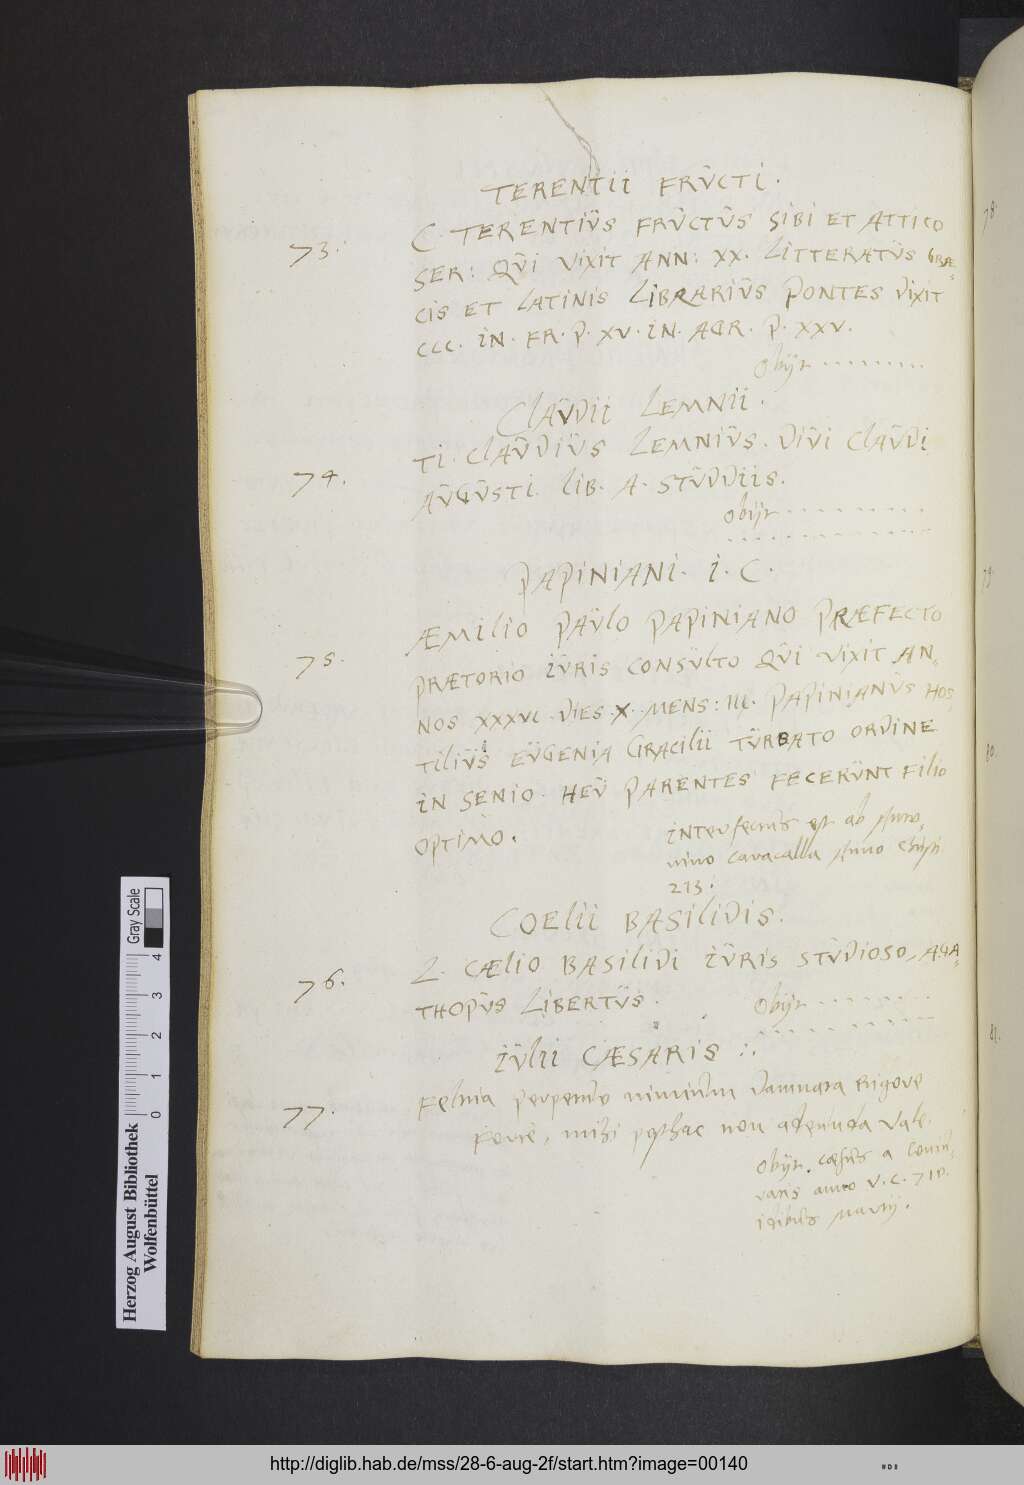 TERENTII FRŬCTI.
73. C. TERENTIŬS FRŬCTŬS SIBI ET ATTICO
SER: QŬI VIXIT ANN: XX. LITTERATŬS GRÆ=
CIS ET LATINIS LIBRARIŬS PONTES VIXIT
CCC. IN. FR. P. XV. IN. AGR. P. XXV.
Obijt .........
CLAŬDII LEMNII.
74. TI. CLAŬDIŬS LEMNIŬS. DIŬI CLAŬDI
AŬGŬSTI. LIB. A. STŬDDIIS.
Obijt .........
PAPINIANI. I. C.
75. ÆMILIO PAŬLO PAPINIANO PRÆFECTO
PRÆTORIO IŬRIS CONSŬLTO QŬI VIXIT AN=
NOS XXXVI. DIES. X. MENS: III. PAPINIANŬS HOS
TILIŬS EŬGENIA GRACILII TŬRBATO ORDINE
IN SENIO. HEŬ PARENTES FECERŬNT FILIO
OPTIMO.
interfectŭs est ab Anto=
nino Caracalla Anno Christi
213.
COELII BASILIDIS.
76. L. CÆLIO BASILIDI IŬRIS STŬDIOSO, AGA=
THOPŬS LIBERTŬS.
Obijt .........
IŬLII CÆSARIS :.
77. perpende nimiŭm damnata rigore
mihi non Vale.
Obijt. cæsŭs a Coniŭ=
ratis anno V. C. 710.
idibŭs Martij.
78.
79.
80.
81.
Herzog August Bibliothek
Wolfenbüttel
0 1 2 3 4
Gray Scale
http://diglib.hab.de/mss/28-6-aug-2f/start.htm?image=00140